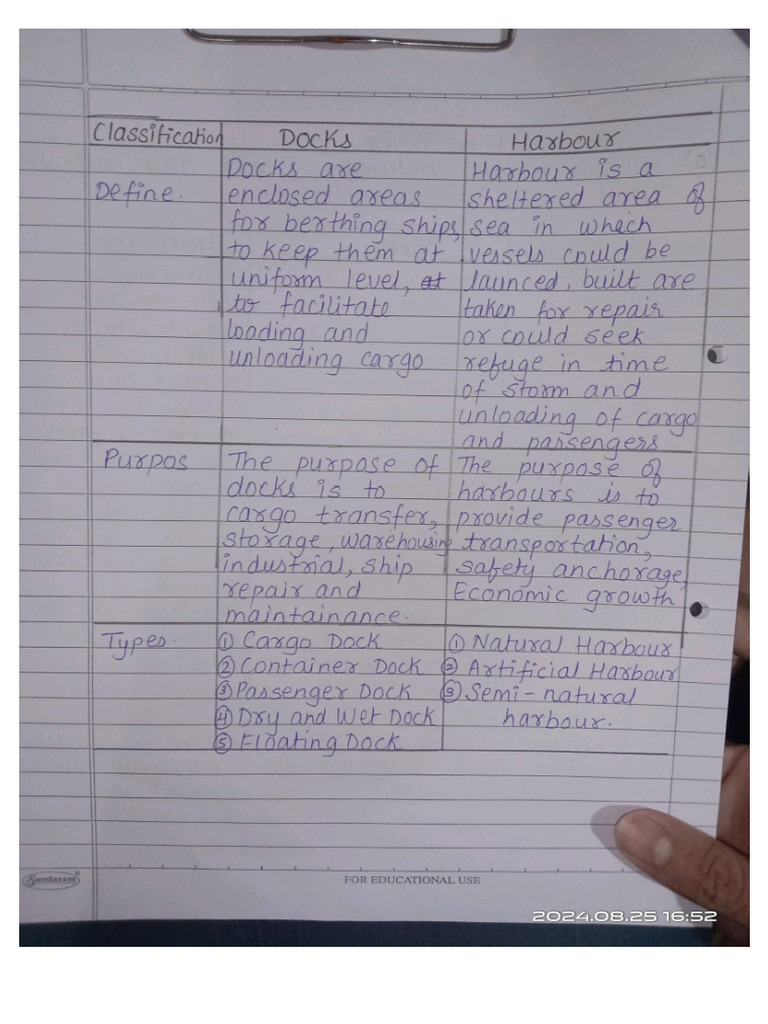 Classification Docks Harbour
Define.
Docks are
enclosed areas
for berthing ships,
to keep them at
uniform level, at
to facilitate
loading and
unloading cargo
Harbour is a
sheltered area of
sea in which
vessels could be
launced, built are
taken for repair
or could seek
refuge in time
of storm and
unloading of cargo
and passengers
Purpos
The purpose of
docks is to
cargo transfer,
storage, warehousing
industrial, ship
repair and
maintainance.
The purpose of
harbours is to
provide passenger
transportation,
safety anchorage,
Economic growth
Types.
① Cargo Dock
② Container Dock
③ Passenger Dock
④ Dry and Wet Dock
⑤ Floating Dock
① Natural Harbour
② Artificial Harbour
③ Semi-natural
harbour.
Sundaram
FOR EDUCATIONAL USE
2024.08.25 16:52